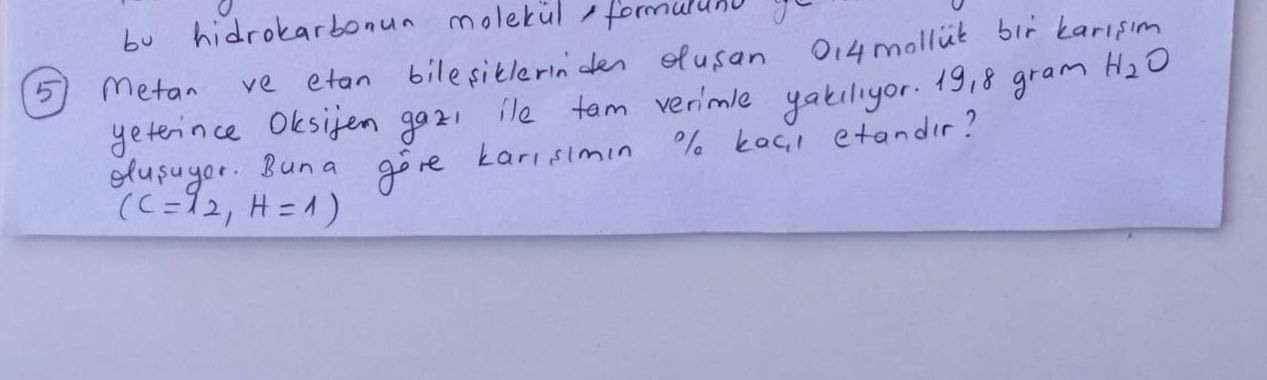 bu hidrokarbonun molekül formulunu
5 Metan ve etan bileşiklerinden oluşan 0,4 mollük bir karışım
yeterince Oksijen gazı ile tam verimle yakılıyor. 19,8 gram H2O
oluşuyor. Buna göre karışımın % kaçı etandır?
(C=12, H=1)